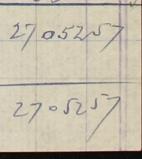 27052.57
2705257